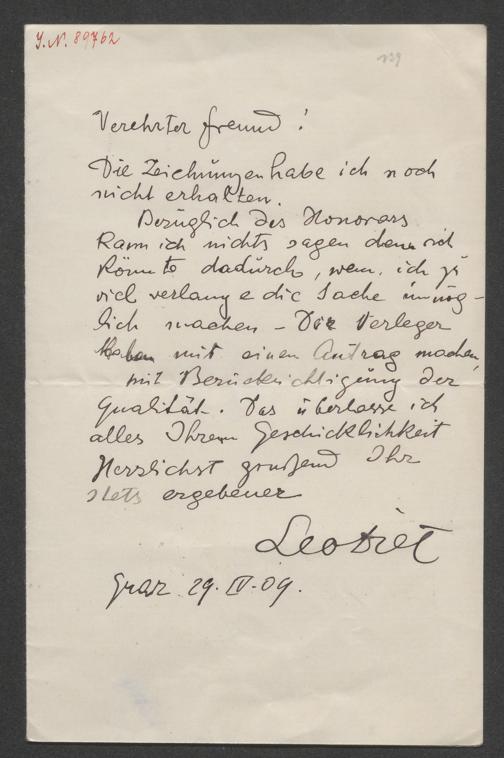 J.N. 89762
139
Verehrter Freund!
Die Zeichnungen habe ich noch
nicht erhalten.
Bezüglich des Honorars
kann ich nichts sagen denn ich
könnte dadurch, wenn ich zu
viel verlange die Sache unmög-
lich machen – Der Verleger
mit einen Antrag machen,
mit Berücksichtigung der
Qualität. Das überlasse ich
alles Ihrem Geschicklichkeit
Herzlichst grüßend Ihr
stets ergebener
Leo Diet
Graz 29. IV. 09.